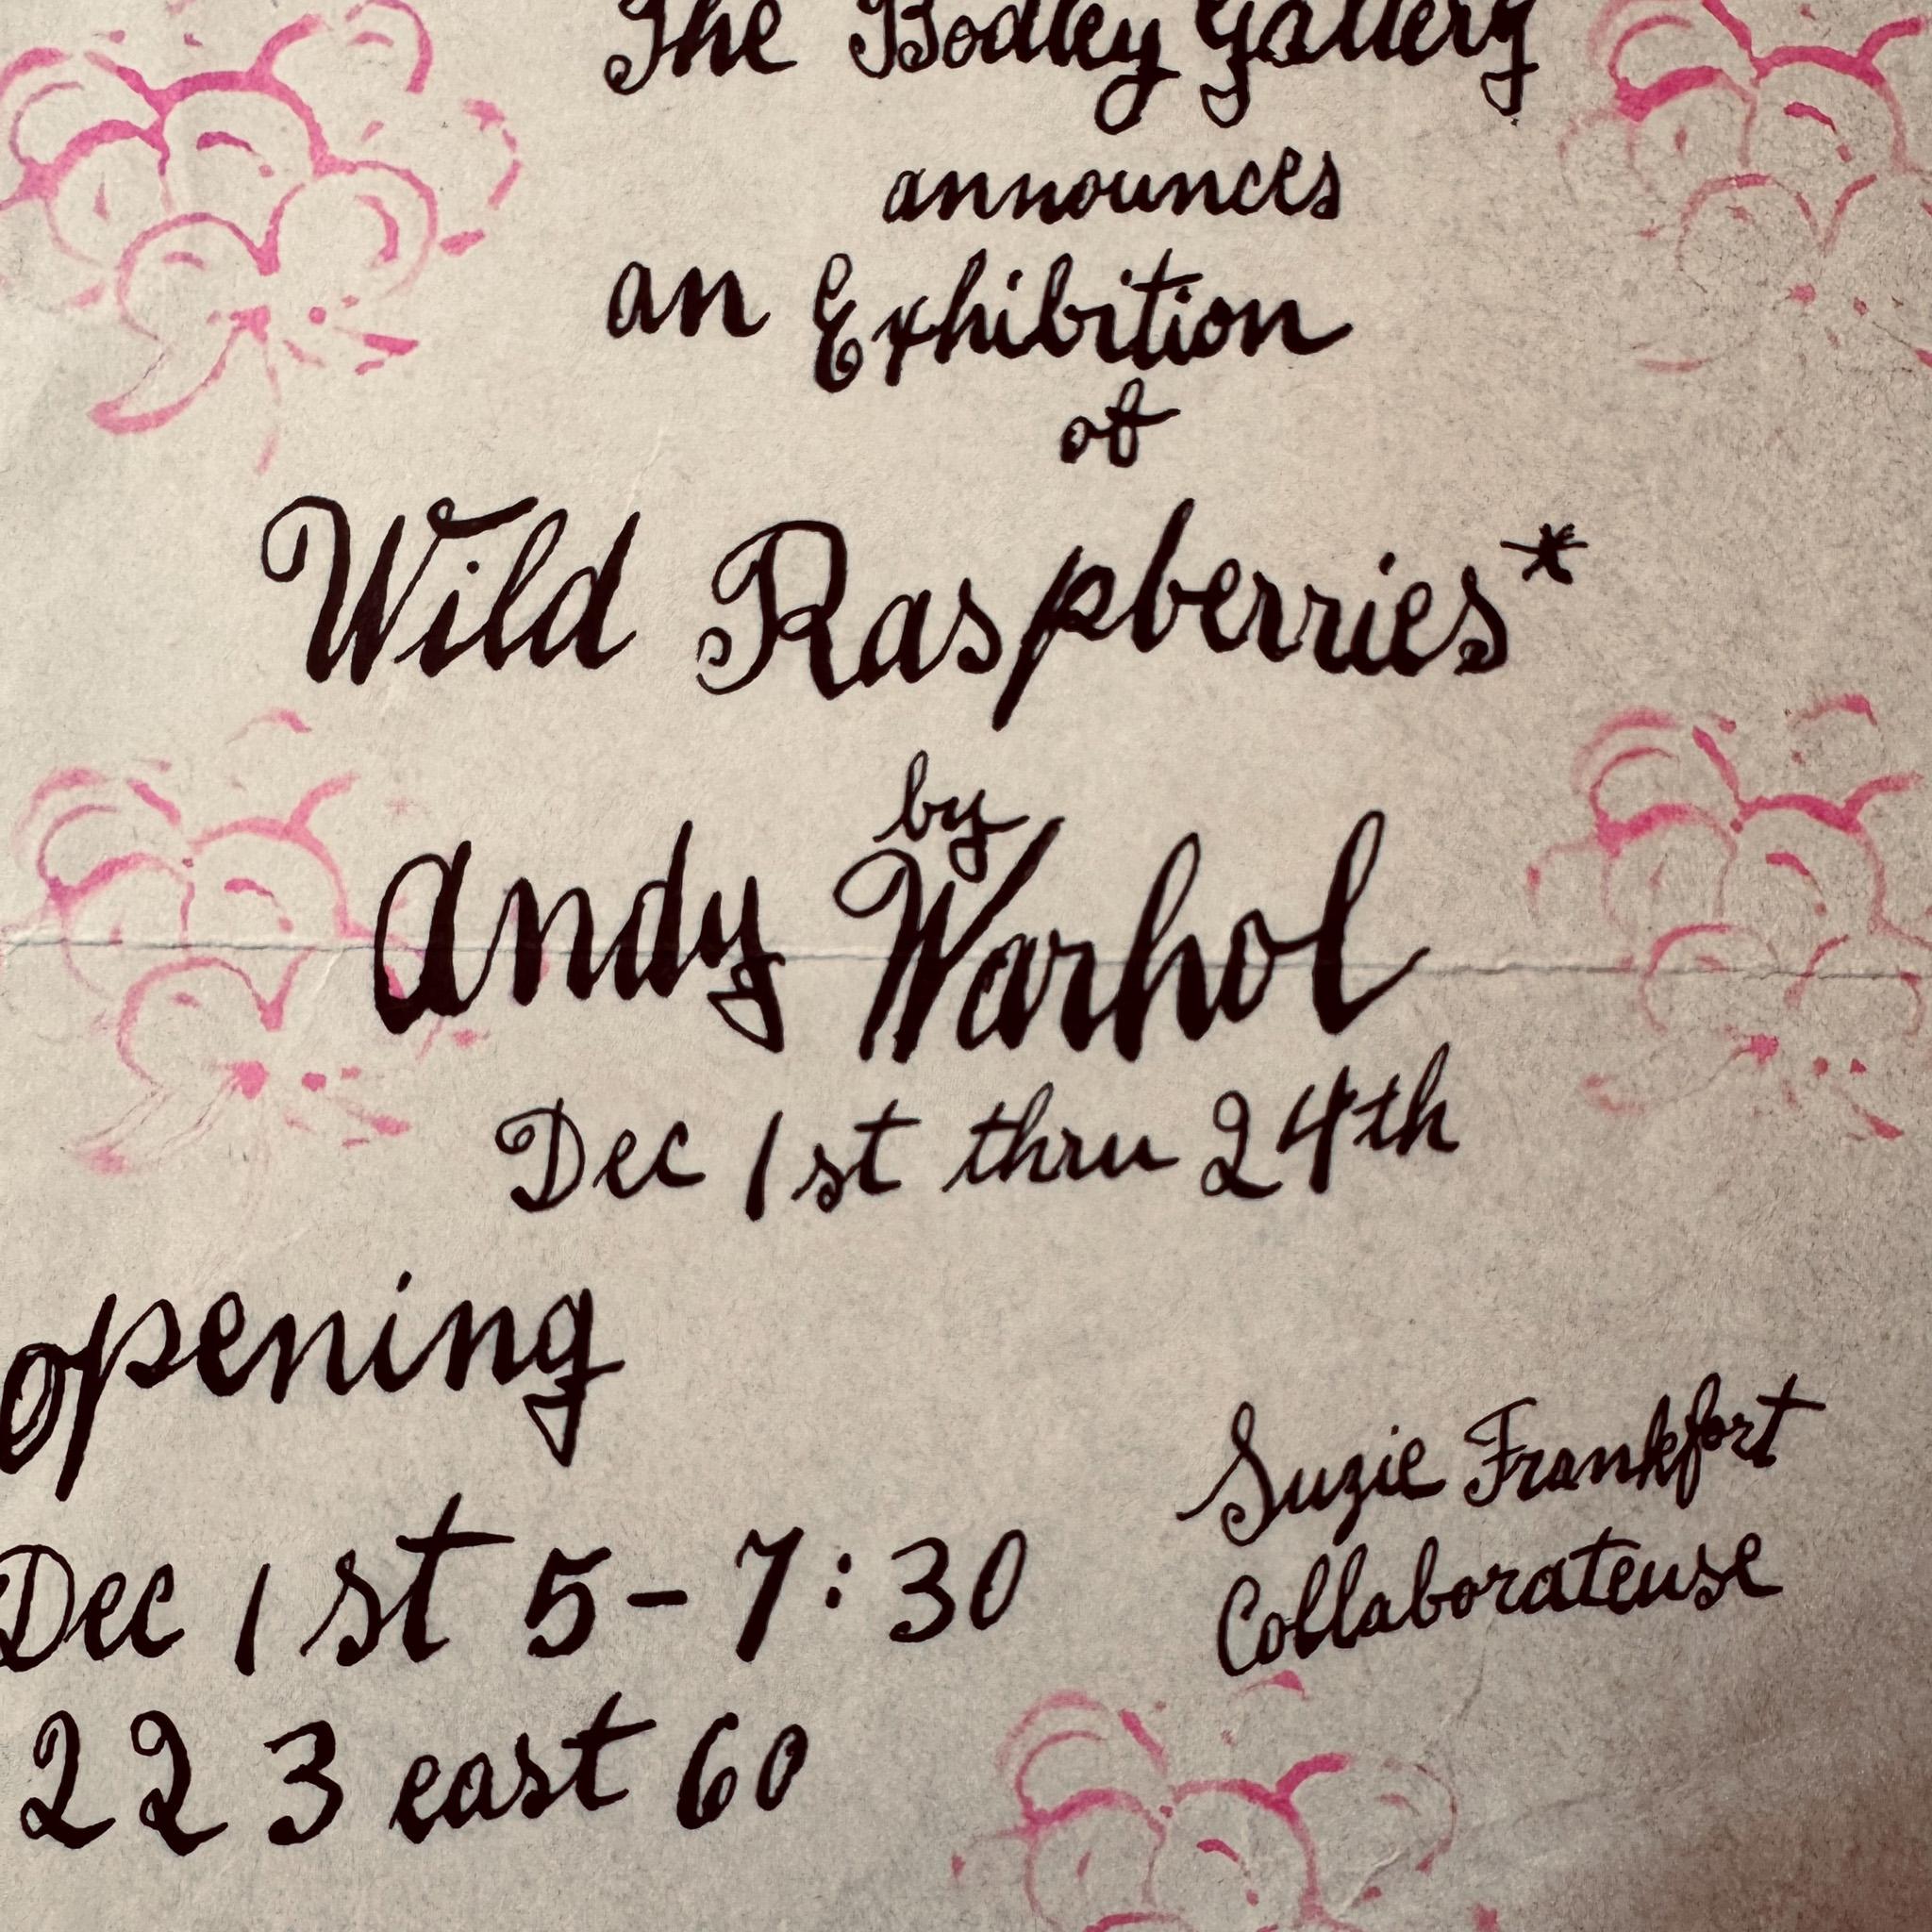 The Bodley Gallery
announces
an Exhibition
of
Wild Raspberries*
by
Andy Warhol
Dec 1st thru 24th
opening
Dec 1st 5-7:30
223 east 60
Suzie Frankfort
Collaborateuse